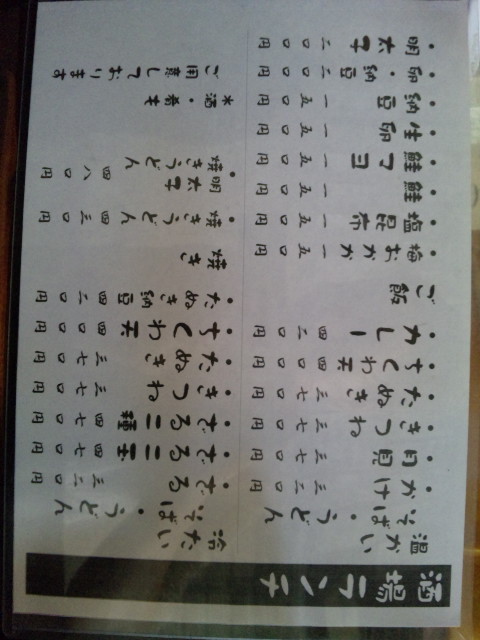 酒場ランチ
温かい
そば・うどん
・かけ 三二〇円
・月見 三七〇円
・きつね 三七〇円
・たぬき 三七〇円
・ちくわ天 四〇〇円
・カレー 四二〇円
ご飯
・梅おかか 一五〇円
・塩昆布 一五〇円
・鮭 一五〇円
・鮭マヨ 一五〇円
・生卵 一五〇円
・納豆 一五〇円
・卵・納豆 二〇〇円
・明太子 二〇〇円
冷たい
そば・うどん
・ざる 三二〇円
・ざる二玉 四七〇円
・ざる二種 四七〇円
・きつね 三七〇円
・たぬき 三七〇円
・ちくわ天 四〇〇円
・たぬき納豆 四二〇円
焼き
・焼きうどん 四三〇円
・明太子
焼きうどん 四八〇円
＊酒・肴も
ご用意しております